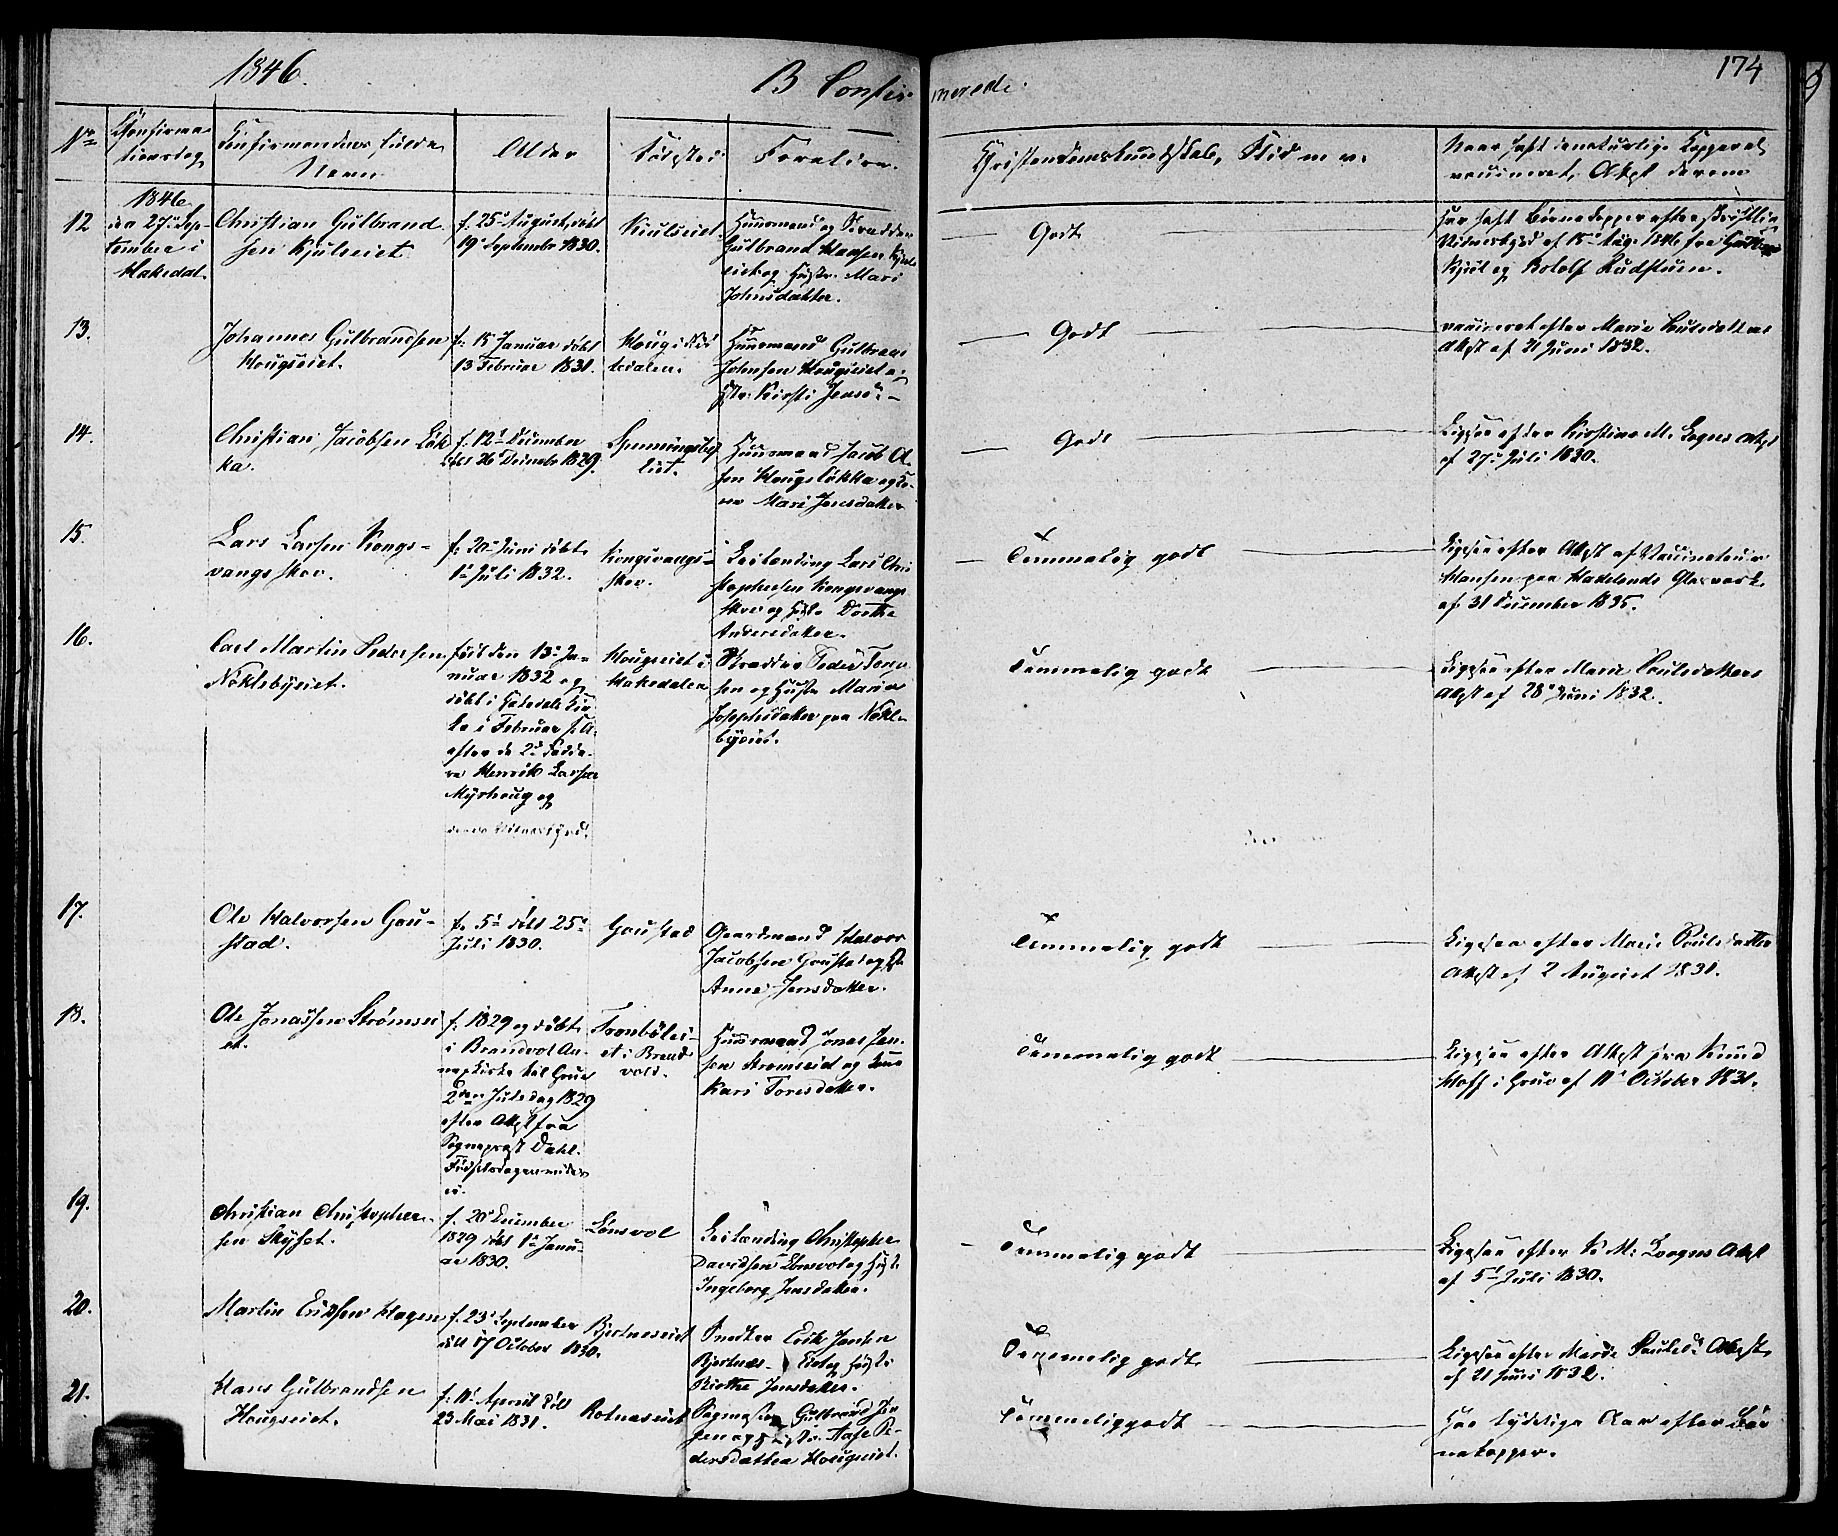 1846.
B Confir-
merede.
174
Nr
Confirma-
tionsdag
Confirmandens fulde
Navn
Alder
Födested
Foreldre.
Christendomskundskab, Flid m. v.
Naar havt de naturlige Kopper el.
vaccineret, Attest derom
12
1846
den 27de Sep-
tember i
Hakedal.
Christian Gulbrand-
sen Kjulseiet
f. 25de August, döbt
19de September 1830.
Kiulseiet.
Huusmand og Skrædder
Gulbrand Hansen Kjuls-
eiet og Hustr. Mari
Johnsdatter.
Godt
Har havt Börnekopper efter skriftlig
Vidnesbyrd af 15de Aug. 1846 fra
Kjul og Botolf Rudstuen.
13.
Johannes Gulbrandsen
Hougseiet.
f. 15 Januar döbt
13 Februar 1831.
Houg i Ha-
kedalen.
Huusmand Gulbrand
Johnsen Hougseiet og
Hstr. Kirsti Jensd.
Godt
vaccineret efter Marie Poulsdatters
Attest af 21 Juni 1832.
14.
Christian Jacobsen Lök-
ka.
f. 12te December
döbt 26 Decembr 1829.
Huusmand Jacob Ol-
sen Hougslökka og Ko-
ne Mari Jensdatter
Godt
Ligesaa efter Kirstine M. Cogns Attest
af 27de Juli 1830.
15.
Lars Larsen Kongs-
vangsskov.
f. 20de Juni döbt
1ste Juli 1832.
Kongsvangs-
skov.
Leilending Lars Chri-
stophersen Kongsvangs-
skov og Hust. Dorthe
Andersdatter.
Temmelig godt
Ligesaa efter Attest af Vaccinateur
Hansen paa Hadelands Glasverk
af 31 December 1835.
16.
Carl Martin Pedersen
Noklebyeiet.
född den 13de Ja-
nuar 1832 og
döbt i Hakedals Kir-
ke i Februar s. A.
efter de 2de Fadde-
re Henrik Larsen
Myrhoug og
Vidnesbyrd.
Hougseiet i
Hakedalen
Skrædder Peder
sen og Hustr Maria
Josephsdatter paa Nokle-
byeiet.
Temmelig godt
Ligesaa efter Marie Poulsdatters
Attest af 28de Juni 1832.
17.
Ole Halvorsen Gou-
stad.
f. 5te döbt 25de
Juli 1830.
Goustad
Gaardmand Halvor
Jacobsen Goustad og
Anne Jensdatter.
Temmelig godt
Ligesaa efter Marie Poulsdatter
Attest af 2 August 1831.
18.
Ole Jonassen Strömsei-
et.
f. 1829 og döbt
i Brandvol An-
nexkirke til Grue
2den Juledag 1829
efter Attest fra
Sogneprest Dahl.
et i Brand-
vold.
Huusmand Jonas Jen-
sen Strömseiet og Kone
Kari Toresdatter.
Temmelig godt
Ligesaa efter Attest fra Knud
Hoff i Grue af 11te October 1831.
19.
Christian Christopher-
sen Skyset.
f. 20de December
1829 döbt 1ste Janu-
ar 1830.
Lönsvol
Leilending Christopher
Davidsen Lönsvol og Hust.
Ingeborg Jensdatter.
Temmelig godt
Ligesaa efter K. M. Coegns Attest
af 5te Juli 1830.
20.
Martin Eriksen Hagen
f. 23de September
döbt 17 October 1830.
Bjertneseiet
Snedker Erik Jensen
Bjertnes-Eiet og Hustr.
Birthe Jensdatter.
Temmelig godt
Ligesaa efter Marie Poulsds Attest
af 21 Juni 1832.
21.
Hans Gulbrandsen
Hougseiet.
f. 11te April döbt
23 Mai 1831.
Rotneseiet
Sagmester Gulbrand Jen-
sen og Hustr. Aase Pe-
dersdatter Hougseiet.
Temmelig godt
Har tydelige Ar efter Bör-
nekopper.